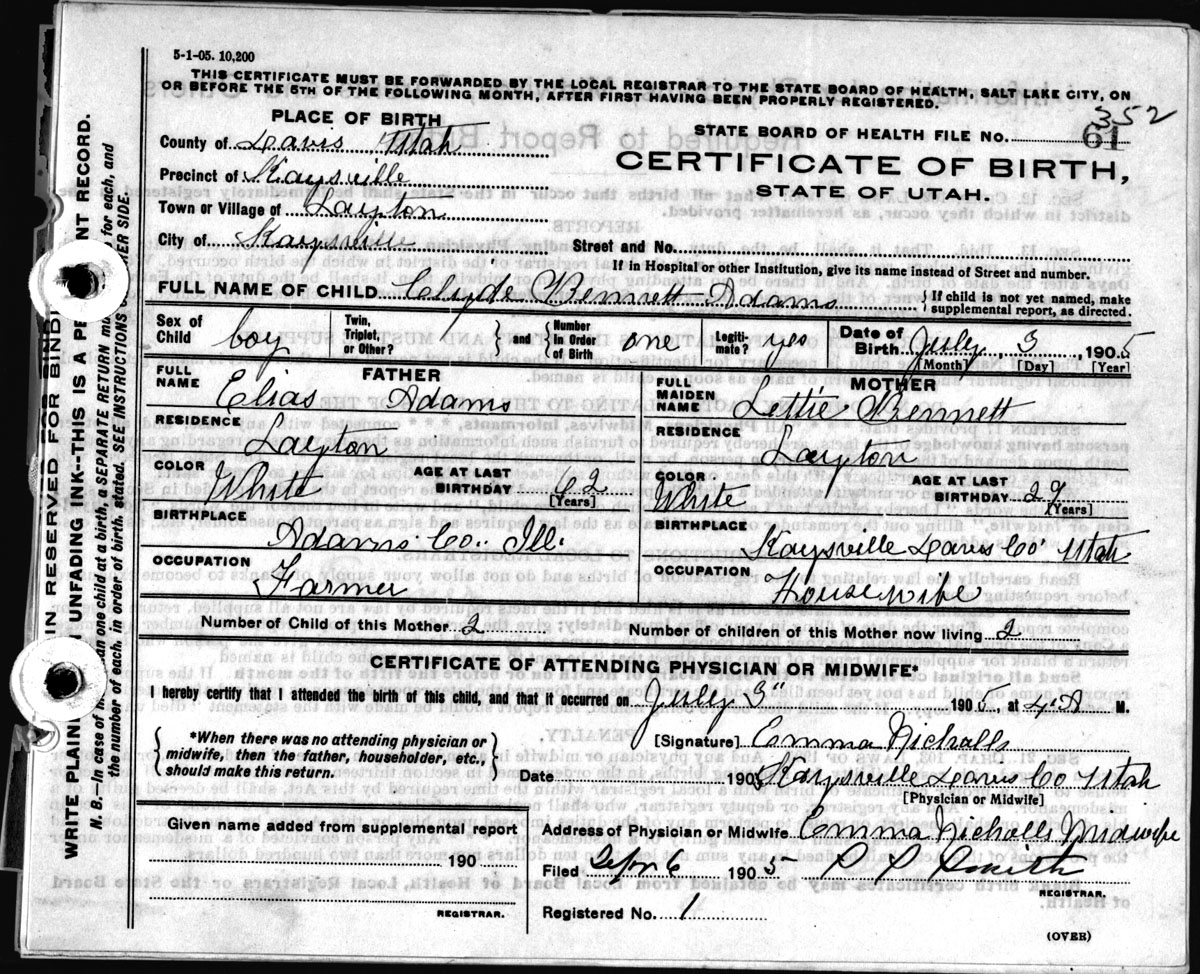 5-1-05. 10,200
THIS CERTIFICATE MUST BE FORWARDED BY THE LOCAL REGISTRAR TO THE STATE BOARD OF HEALTH, SALT LAKE CITY, ON
OR BEFORE THE 5TH OF THE FOLLOWING MONTH, AFTER FIRST HAVING BEEN PROPERLY REGISTERED.
PLACE OF BIRTH
County of Davis Utah
Precinct of Kaysville
Town or Village of Layton
City of Kaysville
352
STATE BOARD OF HEALTH FILE No. 61
CERTIFICATE OF BIRTH,
STATE OF UTAH.
Street and No.
If in Hospital or other Institution, give its name instead of Street and number.
FULL NAME OF CHILD Clyde Bennett Adams { If child is not yet named, make supplemental report, as directed.
Sex of Child boy Twin, Triplet, or Other? } and { Number in Order of Birth one Legitimate? yes Date of Birth July 3, 1905
[Month] [Day] [Year]
FATHER
FULL NAME Elias Adams
RESIDENCE Layton
COLOR White AGE AT LAST BIRTHDAY 62 [Years]
BIRTHPLACE Adams Co. Ill.
OCCUPATION Farmer
MOTHER
FULL MAIDEN NAME Lettie Bennett
RESIDENCE Layton
COLOR White AGE AT LAST BIRTHDAY 29 [Years]
BIRTHPLACE Kaysville Davis Co Utah
OCCUPATION Housewife
Number of Child of this Mother 2 Number of children of this Mother now living 2
CERTIFICATE OF ATTENDING PHYSICIAN OR MIDWIFE*
I hereby certify that I attended the birth of this child, and that it occurred on July 3" 1905, at 4.A M.
{ *When there was no attending physician or midwife, then the father, householder, etc., should make this return. }
[Signature] Emma Nicholls
Date 190 Kaysville Davis Co Utah
[Physician or Midwife]
Given name added from supplemental report
190
REGISTRAR.
Address of Physician or Midwife Emma Nicholls Midwife
Filed 6 1905 Smith
REGISTRAR.
Registered No. 1
(OVER)
IN RESERVED FOR BINDI
WRITE PLAIN UNFADING INK--THIS IS A PE NT RECORD.
N. B.--In case of m an one child at a birth, a SEPARATE RETURN mu for each, and
the number of each, in order of birth, stated. SEE INSTRUCTIONS ER SIDE.